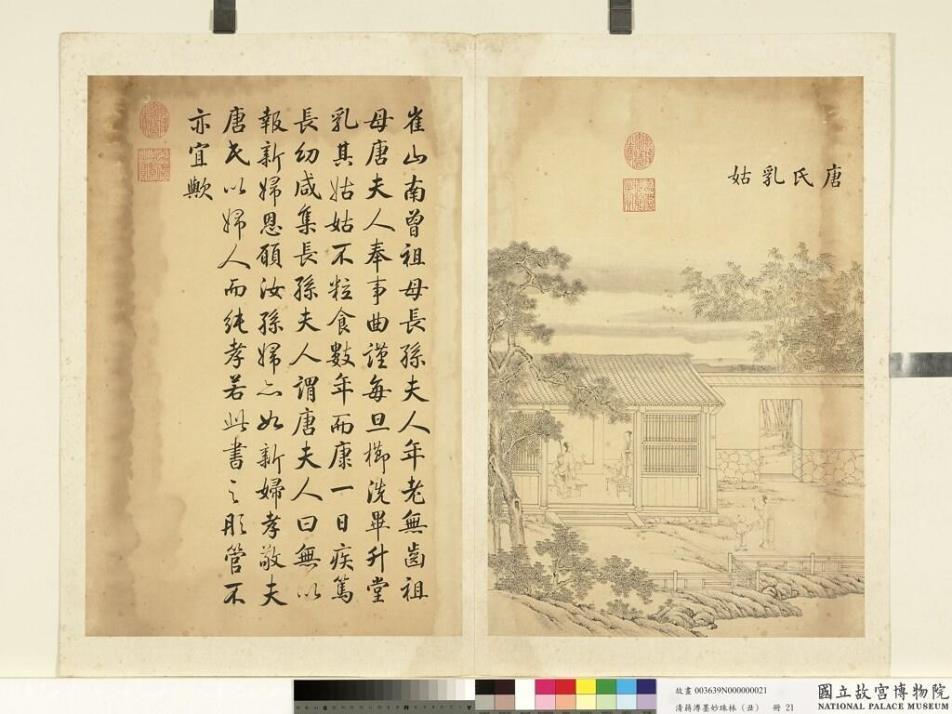 唐氏乳姑
崔山南曾祖母長孫夫人年老無齒祖
母唐夫人奉事曲謹每旦櫛洗畢升堂
乳其姑姑不粒食數年而康一日疾篤
長幼咸集長孫夫人謂唐夫人曰無以
報新婦恩願汝孫婦亦如新婦孝敬夫
唐氏以婦人而純孝若此書之彤管不
亦宜歟
故畫 003639N000000021
清蔣溥墨妙珠林(丑) 冊 21
國立故宮博物院
NATIONAL PALACE MUSEUM